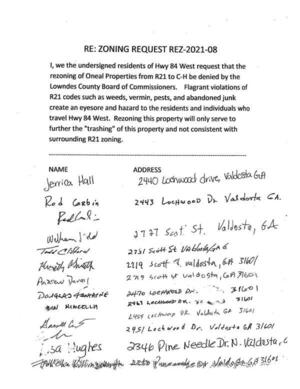 RE: ZONING REQUEST REZ-2021-08
I, we the undersigned residents of Hwy 84 West request that the
rezoning of Oneal Properties from R21 to C-H be denied by the
Lowndes County Board of Commissioners. Flagrant violations of
R21 codes such as weeds, vermin, pests, and abandoned junk
create an eyesore and hazard to the residents and individuals who
travel Hwy 84 West. Rezoning this property will only serve to
further the "trashing" of this property and not consistent with
surrounding R21 zoning.
NAME ADDRESS
Jerrica Hall 2440 Lochwood drive, Valdosta GA
Rod Corbin 2443 Lochwood Dr Valdosta GA.
2727 Scott St. Valdosta, GA
2731 Scott St Valdosta GA
2719 Scott valdosta, GA 31601
Scott st valdosta, GA 31601
2470 Lochwood Dr. 31601
Lochwood Dr.
Lochwood Dr. Valdosta GA 31601
2451 Lochwood Dr. Valdosta GA 31601
Lisa Hughes 2346 Pine Needle Dr. N. Valdosta, G
Valdosta GA 31601